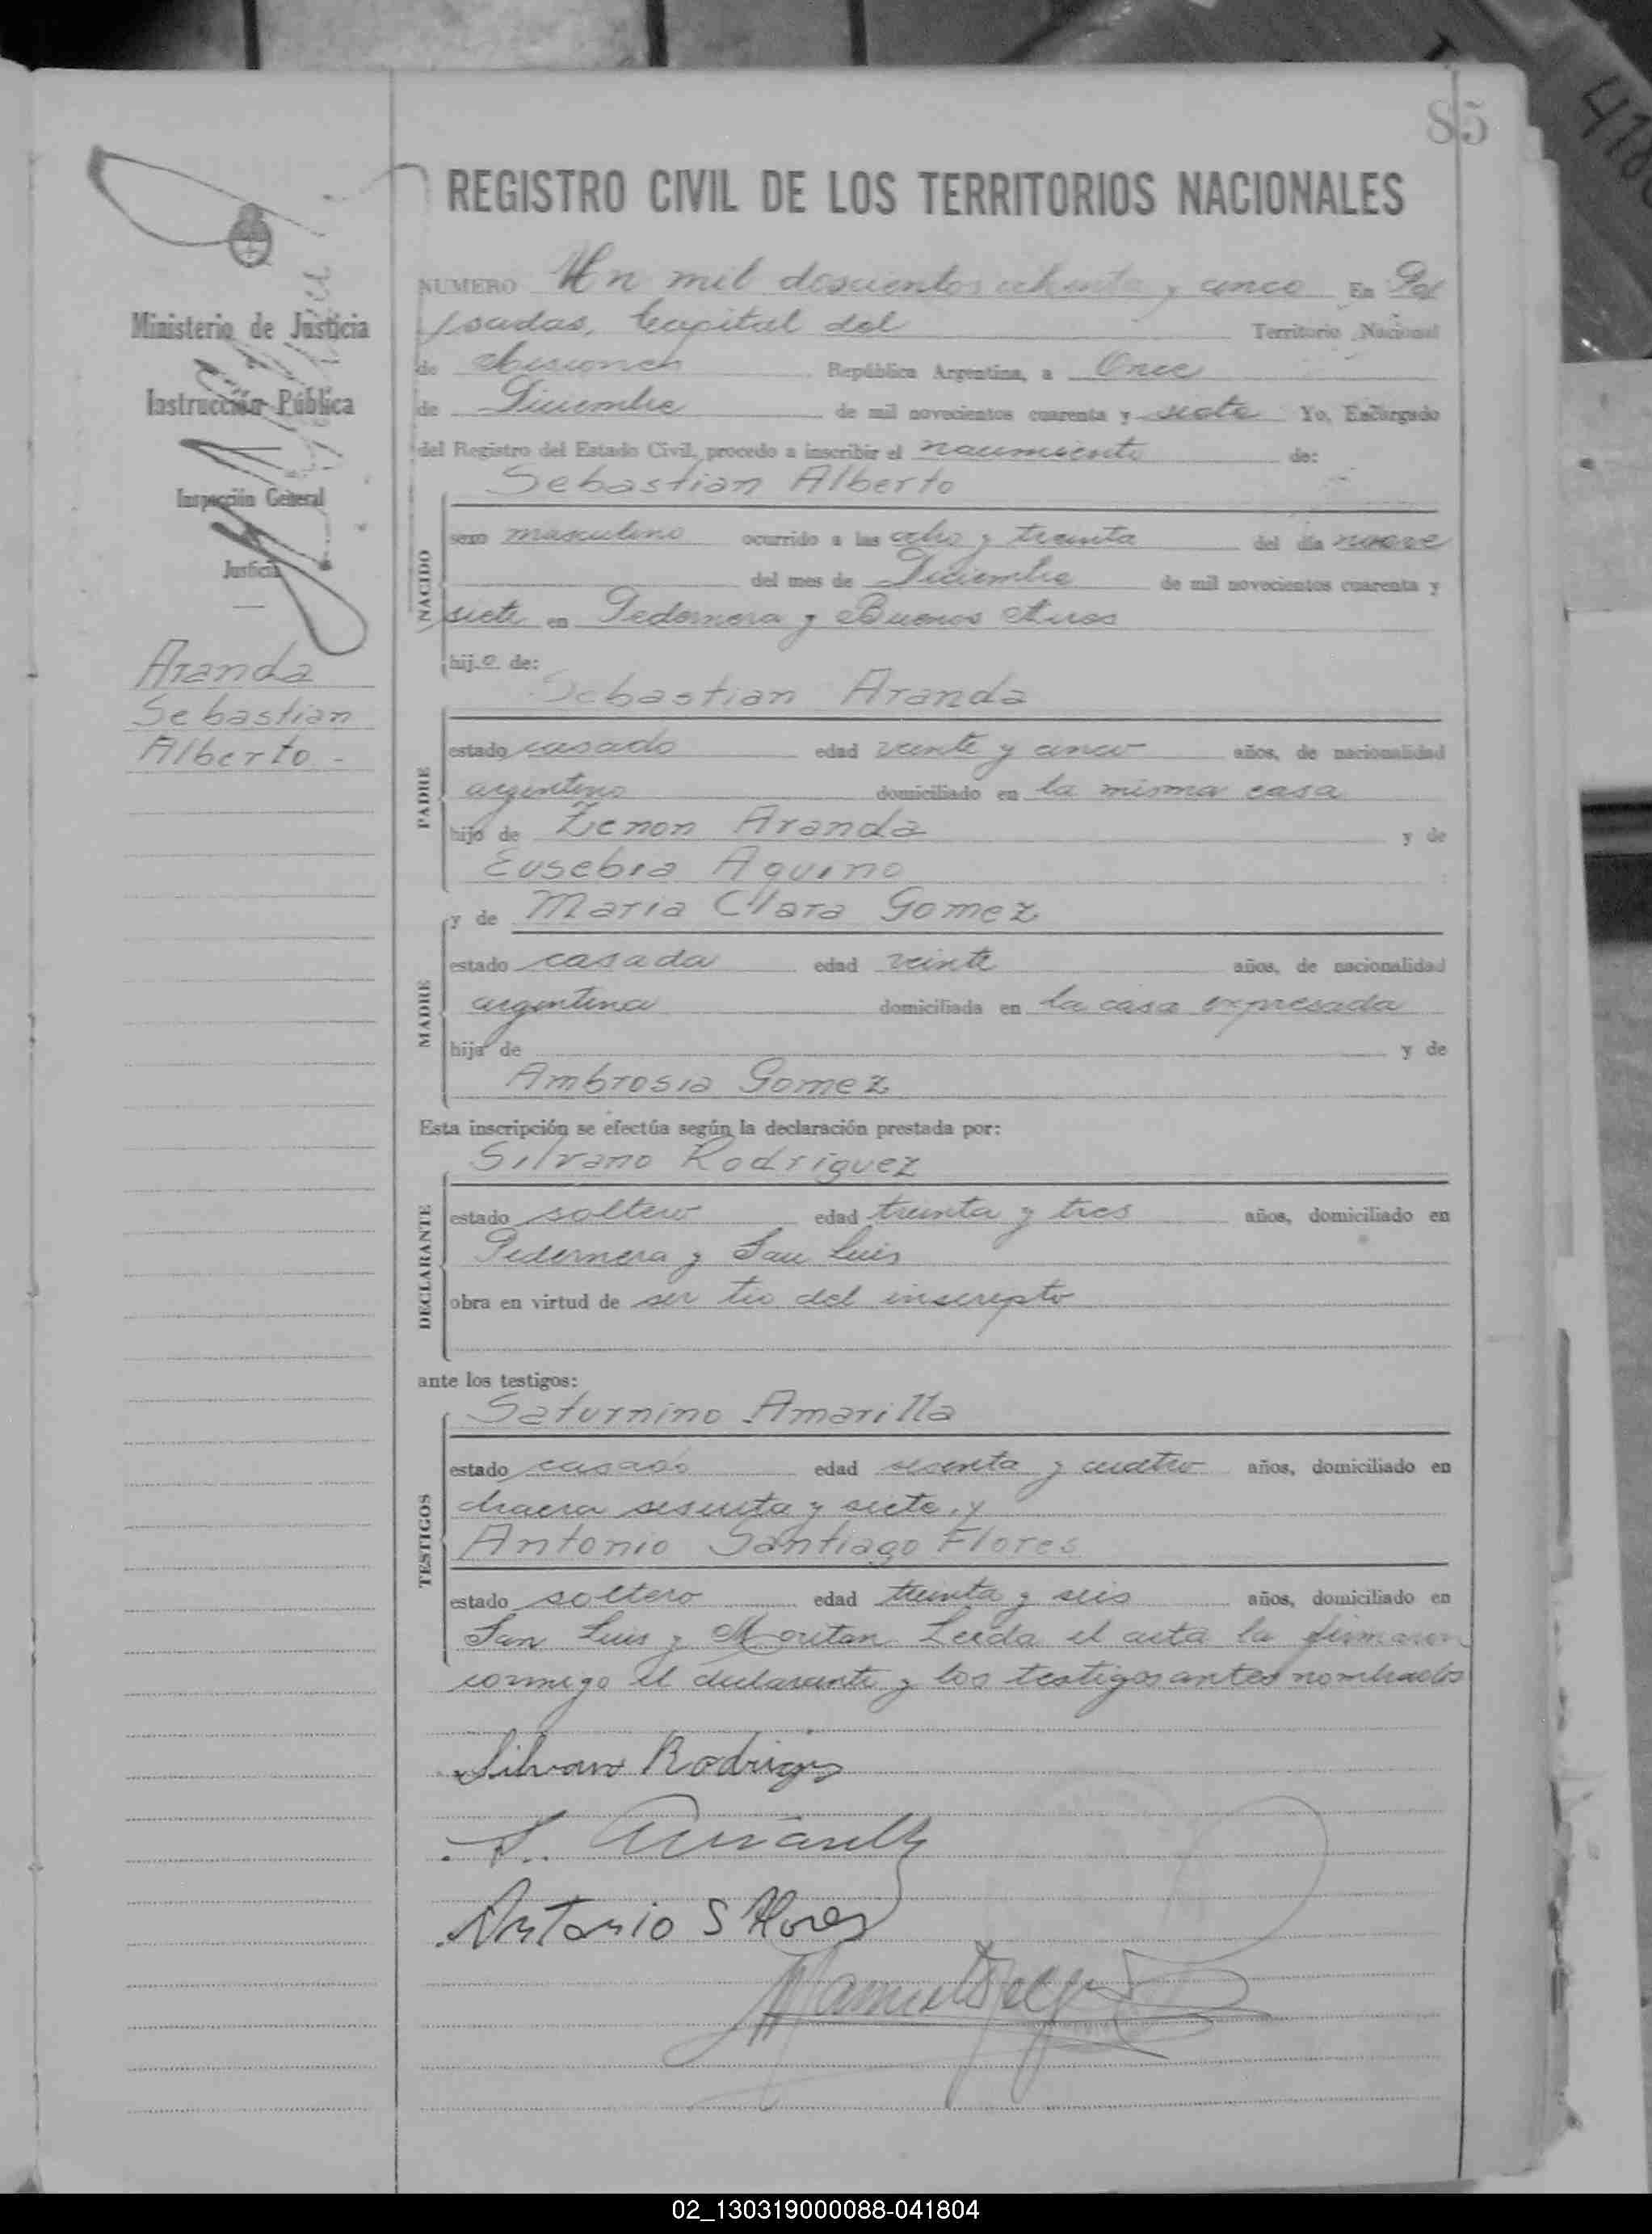 85
REGISTRO CIVIL DE LOS TERRITORIOS NACIONALES
Ministerio de Justicia
Instrucción Pública
Inspección General
Justicia
Aranda
Sebastian
Alberto -
NUMERO Un mil doscientos ochenta y cinco En Po
sadas, Capital del Territorio Nacional
de Misiones República Argentina, a Once
de Diciembre de mil novecientos cuarenta y siete Yo, Encargado
del Registro del Estado Civil, procedo a inscribir el nacimiento de:
Sebastian Alberto
NACIDO
sexo masculino ocurrido a las ocho y treinta del día nueve
del mes de Diciembre de mil novecientos cuarenta y
siete en Pedernera y Buenos Aires
hijo de:
Sebastian Aranda
PADRE
estado casado edad veinte y cinco años, de nacionalidad
argentino domiciliado en la misma casa
hijo de Zenon Aranda y de
Eusebia Aquino
y de Maria Clara Gomez
MADRE
estado casada edad veinte años, de nacionalidad
argentina domiciliada en la casa expresada
hija de y de
Ambrosia Gomez
Esta inscripción se efectúa según la declaración prestada por:
Silvano Rodriguez
DECLARANTE
estado soltero edad treinta y tres años, domiciliado en
Pedernera y San Luis
obra en virtud de ser tio del inscripto
ante los testigos:
Saturnino Amarilla
TESTIGOS
estado casado edad sesenta y cuatro años, domiciliado en
chacra sesenta y siete, y
Antonio Santiago Flores
estado soltero edad treinta y seis años, domiciliado en
San Luis y Leida el acta la firmaron
conmigo el declarante y los testigos antes nombrados
Silvano Rodrigues
S. Amarilla
Antonio S Flores
02_130319000088-041804